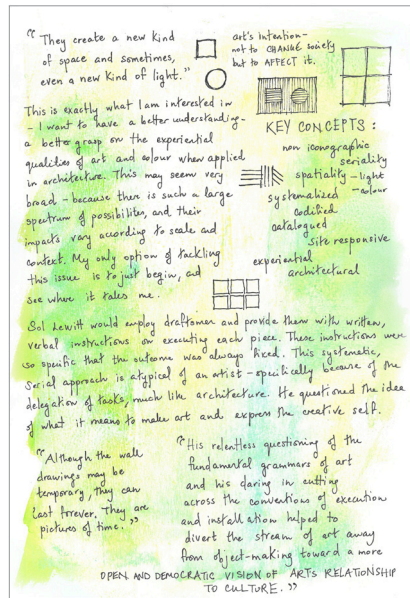 “ They create a new kind
of space and sometimes,
even a new kind of light.”
art's intention-
not to CHANGE society
but to AFFECT it.
This is exactly what I am interested in
- I want to have a better understanding -
a better grasp on the experiential
qualities of art and colour when applied
in architecture. This may seem very
broad - because there is such a large
spectrum of possibilites, and their
impacts vary according to scale and
context. My only option of tackling
this issue is to just begin, and
see where it takes me.
KEY CONCEPTS :
non iconographic
seriality
spatiality - light
- colour
systematized
codified
catalogued
site responsive
experiential
architectural
Sol Lewitt would employ draftsmen and provide them with written,
verbal instructions on executing each piece. These instructions were
so specific that the outcome was always fixed. This systematic,
serial approach is atypical of an artist - specifically because of the
delegation of tasks, much like architecture. He questioned the idea
of what it means to make art and express the creative self.
“Although the wall
drawings may be
temporary, they can
last forever. They are
pictures of time.”
“His relentless questioning of the
fundamental grammars of art
and his daring in cutting
across the conventions of execution
and installation helped to
divert the stream of art away
from object-making toward a more
OPEN AND DEMOCRATIC VISION OF ARTS RELATIONSHIP
TO CULTURE.”